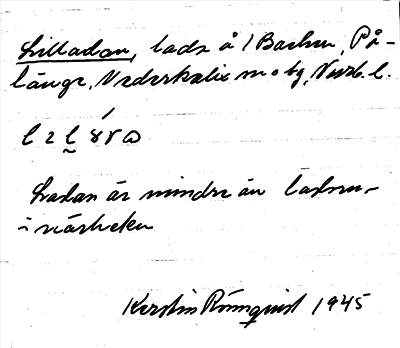 Lilladan, lada å 1 Backen, På-
länge, Nederkalix sn o bg, Nvrb. l.
l 2 l 8 r ɷ
Ladan är mindre än ladorna
i närheten
Kerstin Rönnquist 1945